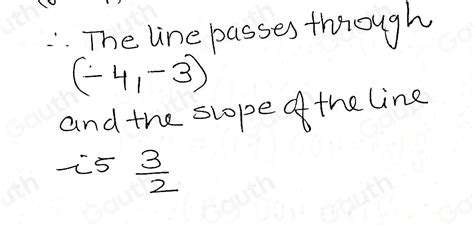 ∴ The line passes through
(-4,-3)
and the slope of the line
is 3/2